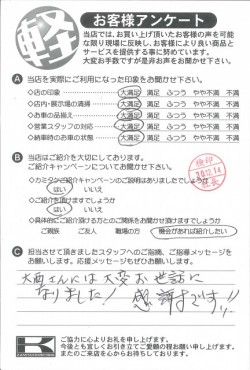 軽
お客様アンケート
当店では、お買い上げ頂いたお客様の声を可能
な限り現場に反映し、お客様により良い商品と
サービスを提供する事に努めています。
大変お手数ですが是非お声をお聞かせ下さい。
A 当店を実際にご利用になった印象をお聞かせ下さい。
◇店の印象 大満足 満足 ふつう やや不満 不満
◇店内・展示場の清掃 大満足 満足 ふつう やや不満 不満
◇お車の品揃え 大満足 満足 ふつう やや不満 不満
◇営業スタッフの対応 大満足 満足 ふつう やや不満 不満
◇納車時のお車の状態 大満足 満足 ふつう やや不満 不満
B 当店はご紹介を大切にしてあります。
ご紹介キャンペーンについてお聞かせ下さい。
◇カミタケご紹介キャンペーンのご説明はありましたでしょうか
はい いいえ
◇ご紹介を頂けますでしょうか
はい いいえ
◇具体的にご紹介頂ける方とのご関係をお聞かせ頂けますでしょうか
ご親族 ご友人 職場の方 機会があれば紹介したい
検印
30.12.14
店長
C 担当させて頂きましたスタッフへのご指摘、ご指導メッセージを
お願いします。応援メッセージもぜひお願いします。
大西さんには大変お世話に
なりました! 感謝です!!
K
ご協力に心よりお礼を申し上げます。
今後とも宜しくお引き立てご愛顧の程お願い申し上げます。
またのご来店を心からお待ちしております。